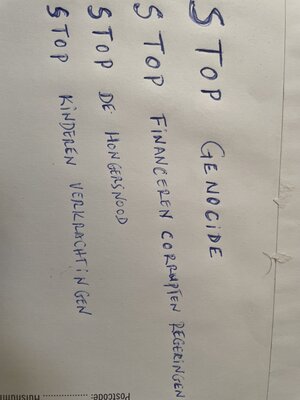 STOP GENOCIDE
STOP FINANCEREN CORRUPTEN REGERINGEN
STOP DE HONGERSNOOD
STOP KINDEREN VERKRACHTINGEN
Postcode: